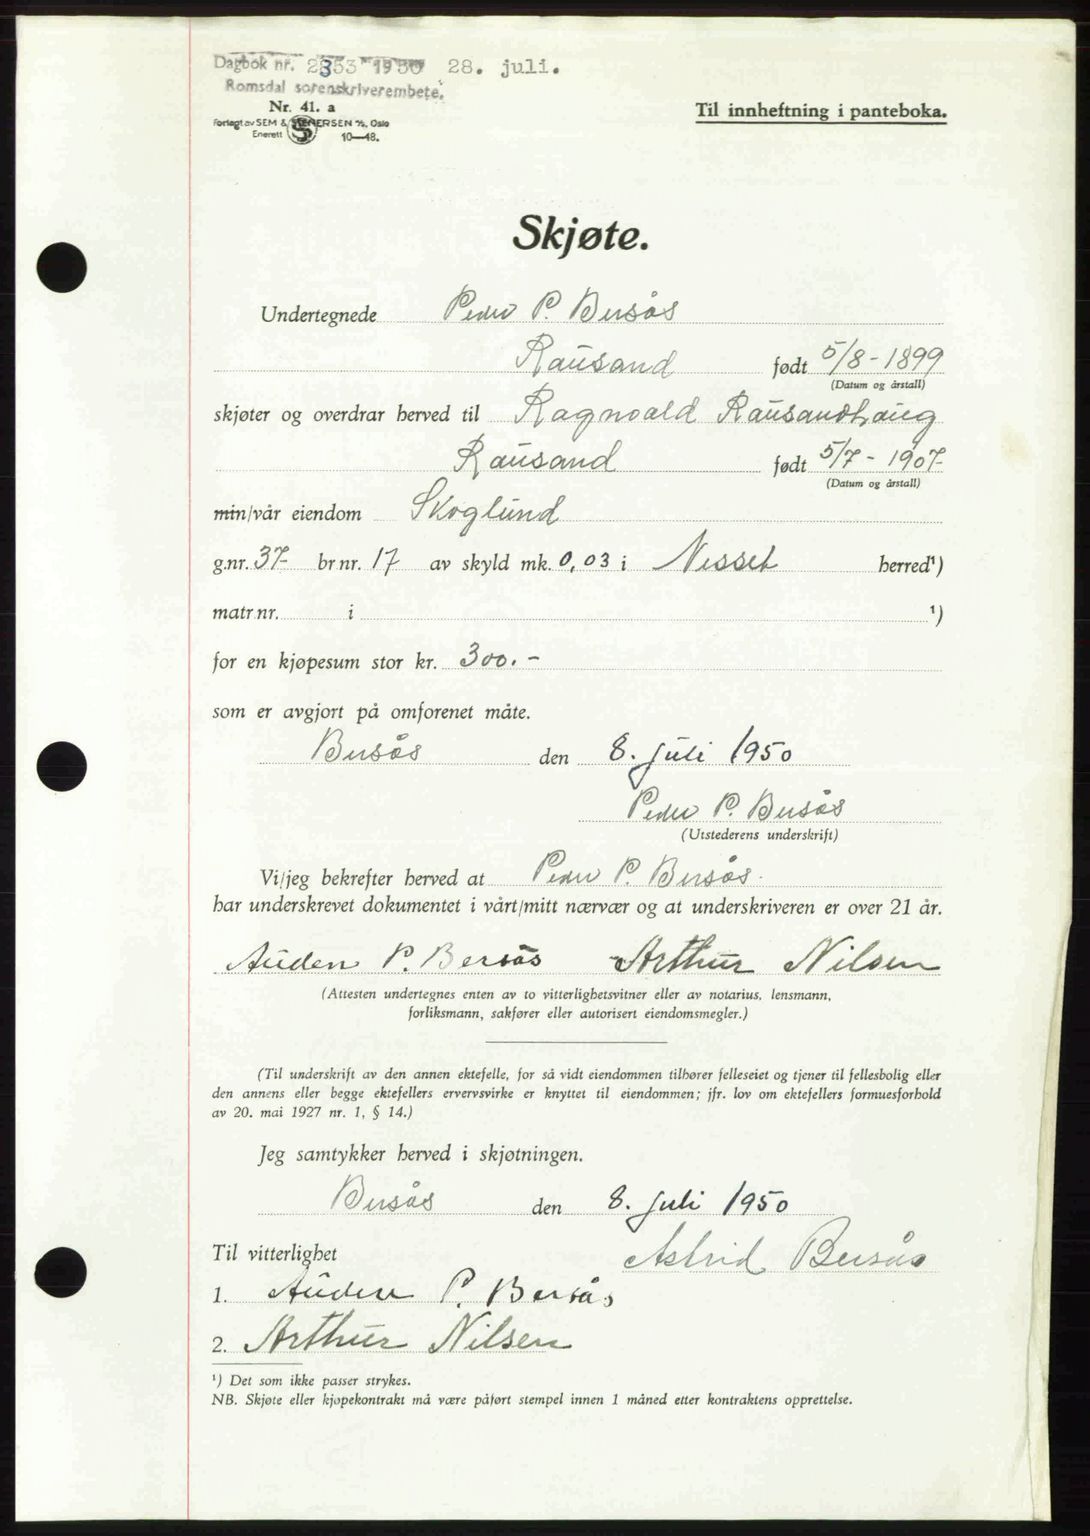 Dagbok nr. 2353 1950 28. juli.
Romsdal sorenskriverembete.
Nr. 41. a
Forlagt av SEM & STENERSEN A/S, Oslo
Enerett 10—48.
Til innheftning i panteboka.
Skjøte.
Undertegnede Peder P. Bersås
Rausand født 5/8-1899
(Datum og årstall)
skjøter og overdrar herved til Ragnvald Rausandhaug
Rausand født 5/7-1907
(Datum og årstall)
min/vår eiendom Skoglund
g.nr. 37 br nr. 17 av skyld mk. 0,03 i Nesset herred¹)
matr nr. i ¹)
for en kjøpesum stor kr. 300.-
som er avgjort på omforenet måte.
Bersås den 8. juli 1950
Peder P. Bersås
(Utstederens underskrift)
Vi/jeg bekrefter herved at Peder P. Bersås
har underskrevet dokumentet i vårt/mitt nærvær og at underskriveren er over 21 år.
Auden P. Bersås Arthur Nilsen
(Attesten undertegnes enten av to vitterlighetsvitner eller av notarius, lensmann,
forliksmann, sakfører eller autorisert eiendomsmegler.)
(Til underskrift av den annen ektefelle, for så vidt eiendommen tilhører felleseiet og tjener til fellesbolig eller
den annens eller begge ektefellers ervervsvirke er knyttet til eiendommen; jfr. lov om ektefellers formuesforhold
av 20. mai 1927 nr. 1, § 14.)
Jeg samtykker herved i skjøtningen.
Bersås den 8. juli 1950
Til vitterlighet Astrid Bersås
1. Auden P. Bersås
2. Arthur Nilsen
¹) Det som ikke passer strykes.
NB. Skjøte eller kjøpekontrakt må være påført stempel innen 1 måned etter kontraktens opprettelse.